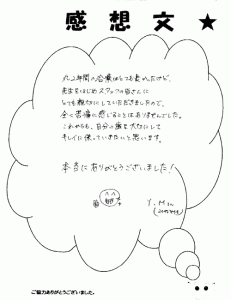 感想文 ★
2年間の治療はとても長かったけど、
先生をはじめスタッフの皆さんに
とても親切にしていただきましたので、
全く苦痛に感じることはありませんでした。
これからも、自分の歯を大切にして
キレイに保っていきたいと思います。
本当にありがとうございました！
ご協力ありがとうございました。